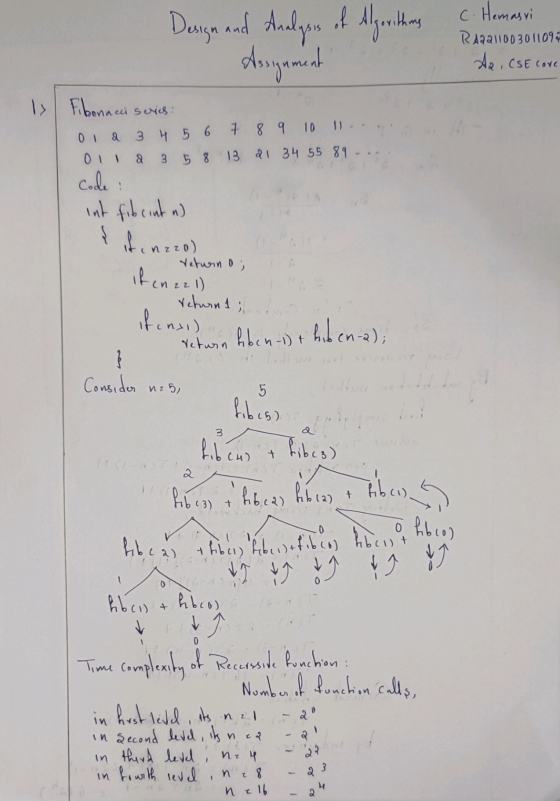 Design and Analysis of Algorithms
Assignment
C. Hemasri
RA2211003011092
A2, CSE core
1>
Fibonacci series:
0 1 2 3 4 5 6 7 8 9 10 11 ....
0 1 1 2 3 5 8 13 21 34 55 89 ....
Code :
int fib(int n)
{
if (n==0)
return 0;
if (n==1)
return 1;
if (n>1)
return fib(n-1) + fib(n-2);
}
Consider n=5,
5
fib(5)
3 2
fib(4) + fib(3)
2 1 1 1
fib(3) + fib(2) fib(2) + fib(1)
1 1 1 0 0 1
fib(2) + fib(1) fib(1) + fib(0) fib(1) + fib(0)
1 1 0 1 0
1 0
fib(1) + fib(0)
1 0
Time complexity of Recerssive function:
Number of function calls,
in first level, its n=1 - 2⁰
in second level, its n=2 - 2¹
in third level, n=4 - 2²
in fourth level, n=8 - 2³
n=16 - 2⁴